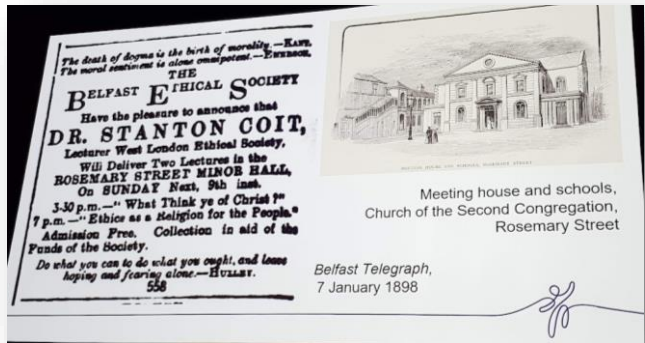 The death of dogma is the birth of morality.—KANT.
The moral sentiment is alone omnipotent.—EMERSON.
THE
BELFAST ETHICAL SOCIETY
Have the pleasure to announce that
DR. STANTON COIT,
Lecturer West London Ethical Society,
Will Deliver Two Lectures in the
ROSEMARY STREET MINOR HALL,
On SUNDAY Next, 9th inst.
3-30 p.m.—"What Think ye of Christ?"
7 p.m.—"Ethics as a Religion for the People."
Admission Free. Collection in aid of the
Funds of the Society.
Do what you can to do what you ought, and leave
hoping and fearing alone.—HUXLEY.
558
MEETING HOUSE AND SCHOOLS, ROSEMARY STREET
Meeting house and schools,
Church of the Second Congregation,
Rosemary Street
Belfast Telegraph,
7 January 1898